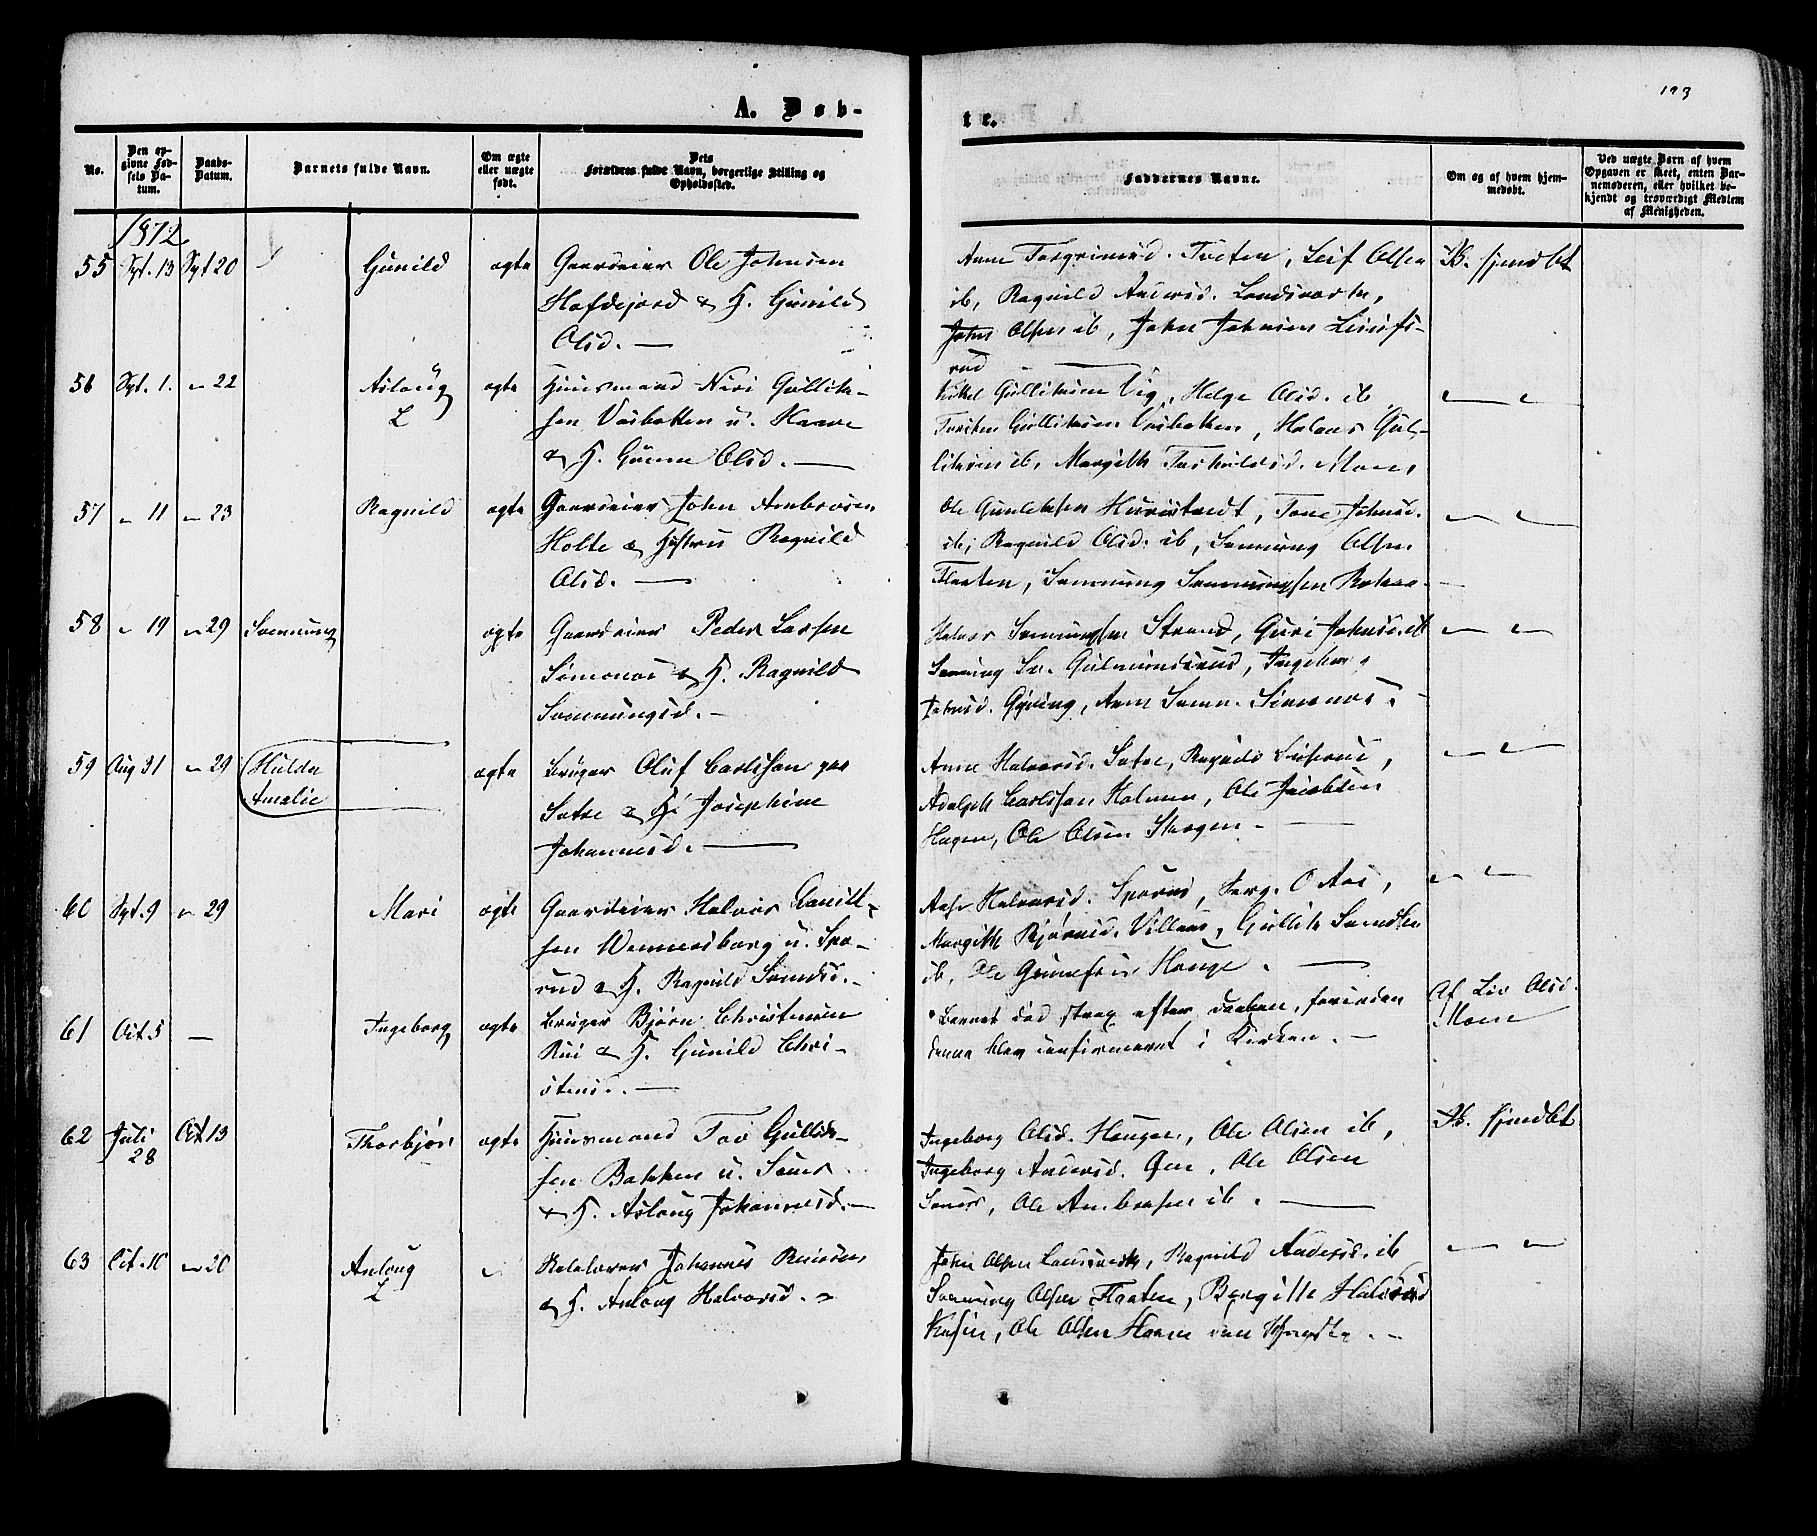 193
A. Døb-
te.
No.
Den op-
givne Fød-
sels Da-
tum.
Daabs-
Datum.
Barnets fulde Navn.
Om ægte
eller uægte
født.
Dets
Forældres fulde Navn, borgerlige Stilling og
Opholdssted.
Faddernes Navne.
Om og af hvem hjem-
medøbt.
Ved uægte Barn af hvem
Opgaven er skeet, enten Bar-
nemoderen, eller hvilket be-
kjendt og troværdigt Medlem
af Menigheden.
1872
55 Spt. 13 Spt 20 Gunild ægte Gaardeier Ole Johnsen
Hofdejord & H. Gunild
Olsd. —
Anne Torgrimsd. Tveten, Leif Olsen
ib, Ragnild Andersd. Landsverk,
John Olsen ib, John Johnsen
rud —
hjmdbt
56 Spt. 1. " 22 Aslaug
L
ægte Huusmand Niri Gullik-
sen Vasbotten u. Haave
& H. Gunne Olsd. —
Kittel Gulliksen Lig, Helge Olsd. ib
Torsten Gulliksen Vasbotten, Halvor Gul-
liksen ib, Margith Torkildsd. Moen,
" "
57 " 11 " 23 Ragnild ægte Gaardeier John Ambrosen
Holte & Hustru Ragnild
Olsd. —
Ole Gunleksen Huvestvedt, Tone Johnsd.
ib, Ragnild Olsd. ib, Sveinung Olsen
Flaaten, Sveinung Sveinungsen
" "
58 " 19 " 29 Sveinung ægte Gaardeier Peder Larsen
Simonæs & H. Ragnild
Sveinungsd. —
Halvor Sveinungsen Strand, Guri Johnsd. ib
Sveinung Sv. Gulmundsrud, Ingebor.
Johnsd. Gyving, Anne Svein. Simonæs.
" "
59 Aug 31 " 29 Hulda
Amalie
ægte Bruger Oluf Carlsson paa
Sætre & H. Josephine
Johannesd. —
Anne Halvorsd. Sætre, Ragnild
Adolph Carlsson Holmen, Ole Jacobsen
Hagen, Ole Olsen Skogen —
" "
60 Spt. 9 " 29 Mari ægte Gaardeier Halvor Danill-
sen Wennersborg u. Spo-
rud & H. Ragnild Svendsd. —
Aase Halvorsd. Sporud, Jørg. O Aas,
Margith Bjørnsd. Villand, Gullik Svendsen
ib, Ole Gunulfsen Hauge. —
" "
61 Oct. 5 — Ingeborg ægte Bruger Bjørn Christensen
Rui & H. Gunild Chri-
stensd. —
Barnet død strax efter Daaben, forinden
denne blev confirmeret i Kirken. —
Af Liv Olsd.
Moen
62 Juli
28
Oct 13 Thorbjør ægte Huusmand Tov Gullik-
sen Bakken u. Sauer
& H. Aslaug Johannesd. —
Ingeborg Olsd. Haugen, Ole Olsen ib,
Ingeborg Andersd. Øen, Ole Olsen
Sauer, Ole Ambrosen ib. —
hjmdbt
63 Oct. 10 " 20 Anlaug
L
" Johannes
& H. Anlaug Halvorsd. "
John Olsen Landsverk, Ragnild Andersd. ib
Sveinung Olsen Flaaten, Bergitte Halvorsd
Kasin, Ole Olsen Haave den Yngste. —
" "